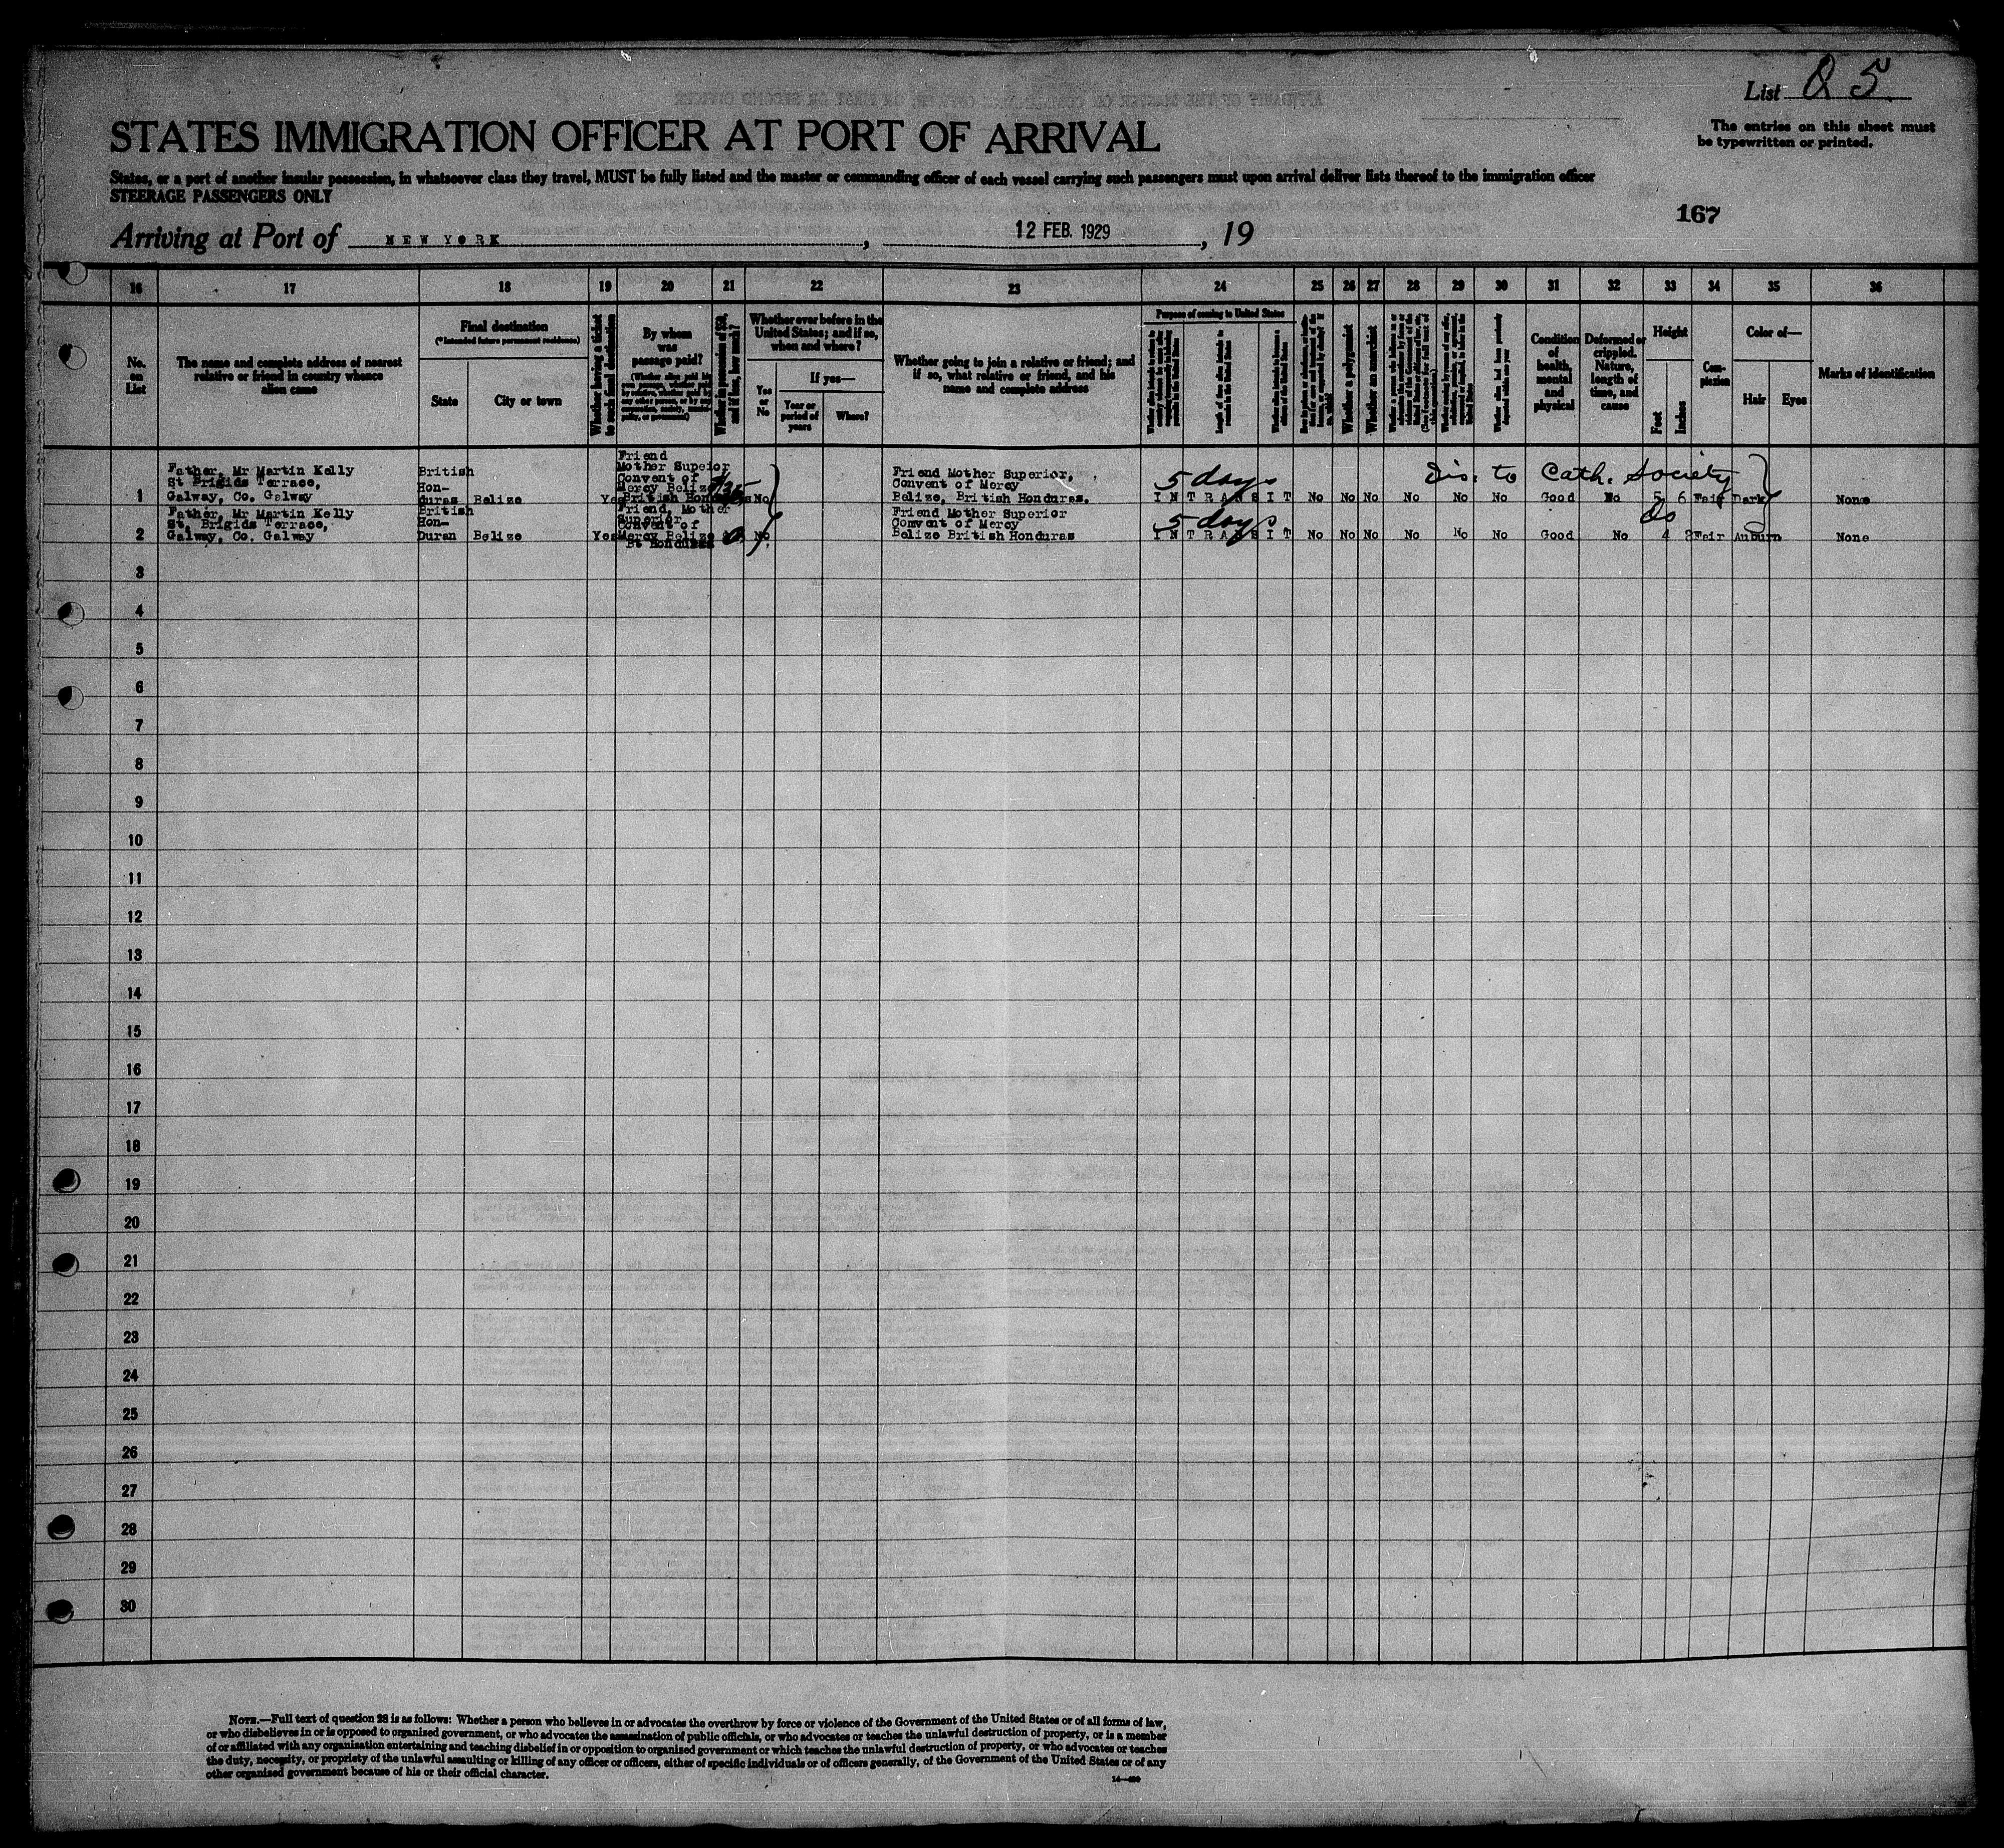 List Q 5
The entries on this sheet must
be typewritten or printed.
STATES IMMIGRATION OFFICER AT PORT OF ARRIVAL
States, or a port of another insular possession, in whatsoever class they travel, MUST be fully listed and the master or commanding officer of each vessel carrying such passengers must upon arrival deliver lists thereof to the immigration officer
STEERAGE PASSENGERS ONLY
167
Arriving at Port of NEW YORK, 12 FEB. 1929, 19
16 17 18 19 20 21 22 23 24 25 26 27 28 29 30 31 32 33 34 35 36
No.
on
List
The name and complete address of nearest
relative or friend in country whence
alien came
Final destination
(*Intended future permanent residence)
State
City or town
Whether having a ticket
to such final destination
By whom
was
passage paid?
Whether in possession of $50,
and if less, how much?
Whether ever before in the
United States; and if so,
when and where?
Yes
or
No
If yes—
Year or
period of
years
Where?
Whether going to join a relative or friend; and
if so, what relative or friend, and his
name and complete address
Purpose of coming to United States
Whether a polygamist
Whether an anarchist
Condition
of
health,
mental
and
physical
Deformed or
crippled.
Nature,
length of
time, and
cause
Height
Feet
Inches
Com-
plexion
Color of—
Hair
Eyes
Marks of identification
Dis. to Cath. Society
1
Father, Mr Martin Kelly
St Brigids Terrace,
Galway, Co. Galway
British
Hon-
duras
Belize
Yes
Friend
Mother Superior
Convent of
Mercy Belize
British Honduras
No
Friend Mother Superior,
Convent of Mercy
Belize, British Honduras.
5 days
INTRANSIT
No No No No No No Good No 5 6 Fair Dark None
2
Father, Mr Martin Kelly
St. Brigids Terrace,
Galway, Co. Galway
British
Hon-
Duran
Belize
Yes
Friend, Mother
Superior
Convent of
Mercy Belize
Bt Honduras
No
Friend Mother Superior
Convent of Mercy
Belize British Honduras
5 days
INTRANSIT
Do
No No No No No No Good No 4 Fair Auburn None
3
4
5
6
7
8
9
10
11
12
13
14
15
16
17
18
19
20
21
22
23
24
25
26
27
28
29
30
NOTE.—Full text of question 28 is as follows: Whether a person who believes in or advocates the overthrow by force or violence of the Government of the United States or of all forms of law,
or who disbelieves in or is opposed to organized government, or who advocates the assassination of public officials, or who advocates or teaches the unlawful destruction of property, or is a member
of or affiliated with any organization entertaining and teaching disbelief in or opposition to organized government or which teaches the unlawful destruction of property, or who advocates or teaches
the duty, necessity, or propriety of the unlawful assaulting or killing of any officer or officers, either of specific individuals or of officers generally, of the Government of the United States or of any
other organized government because of his or their official character.